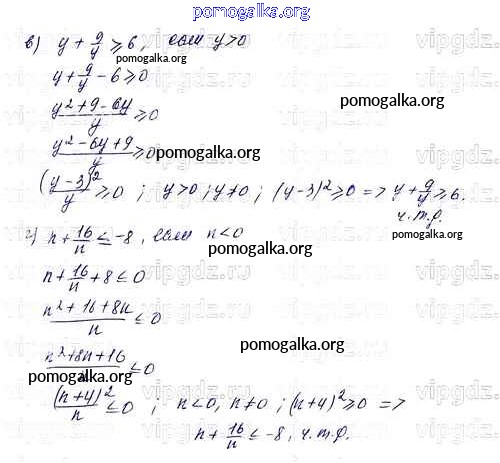 pomogalka.org
в) y + 9/y ≥ 6, если y>0
pomogalka.org
y + 9/y - 6 ≥ 0
(y² + 9 - 6y)/y ≥ 0
pomogalka.org
(y² - 6y + 9)/y ≥ 0
pomogalka.org
(y-3)²/y ≥ 0 ; y>0 ; y≠0 ; (y-3)² ≥ 0 => y + 9/y ≥ 6.
pomogalka.org
ч.т.д.
г) n + 16/n ≤ -8, если n<0
pomogalka.org
n + 16/n + 8 ≤ 0
(n² + 16 + 8n)/n ≤ 0
pomogalka.org
(n² + 8n + 16)/n ≤ 0
pomogalka.org
(n+4)²/n ≤ 0 ; n<0, n≠0 ; (n+4)² ≥ 0 =>
pomogalka.org
n + 16/n ≤ -8, ч.т.д.
vipgdz.